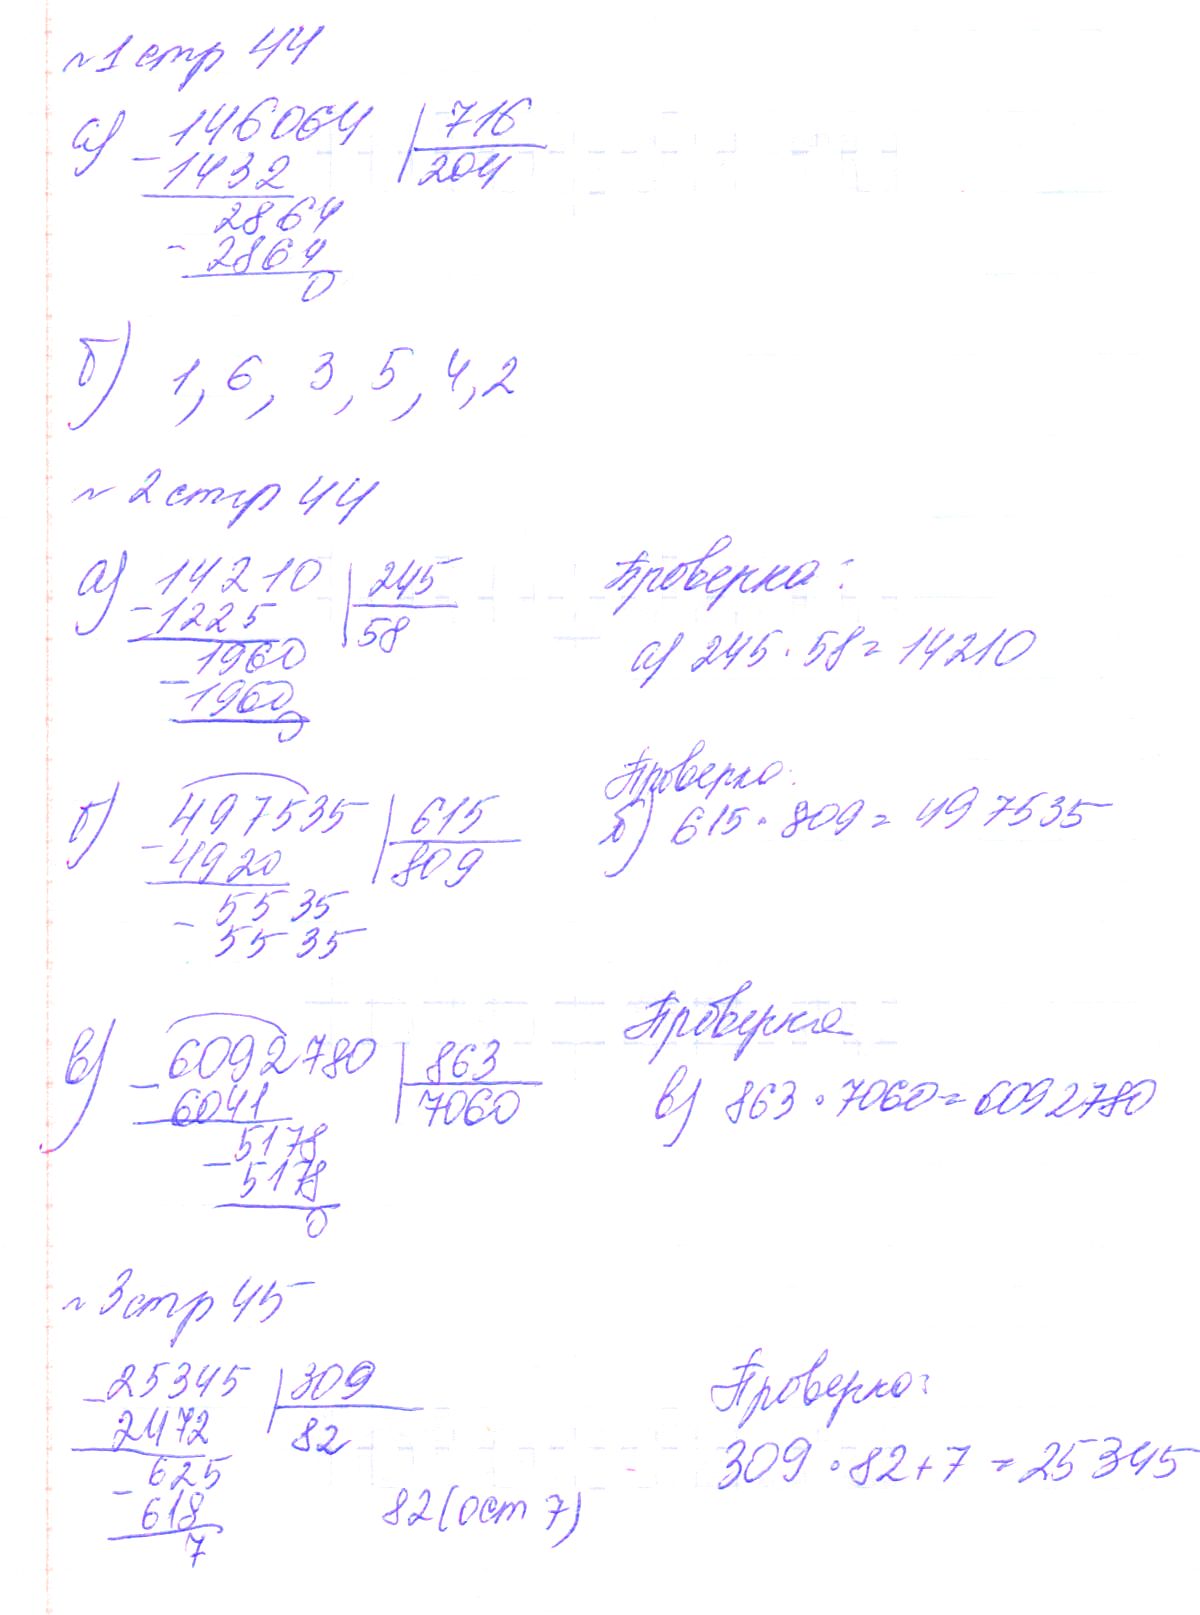 №1 стр 44
а) 146064 | 716
- 1432 | 204
2864
- 2864
0
б) 1, 6, 3, 5, 4, 2
№2 стр 44
а) 14210 | 245
- 1225 | 58
1960
- 1960
0
Проверка:
а) 245 · 58 = 14210
б) 497535 | 615
- 4920 | 809
5535
- 5535
Проверка:
б) 615 · 809 = 497535
в) 6092780 | 863
- 6041 | 7060
5178
- 5178
0
Проверка
в) 863 · 7060 = 6092780
№3 стр 45
- 25345 | 309
2472 | 82
- 625
618
7
82 (ост 7)
Проверка:
309 · 82 + 7 = 25345